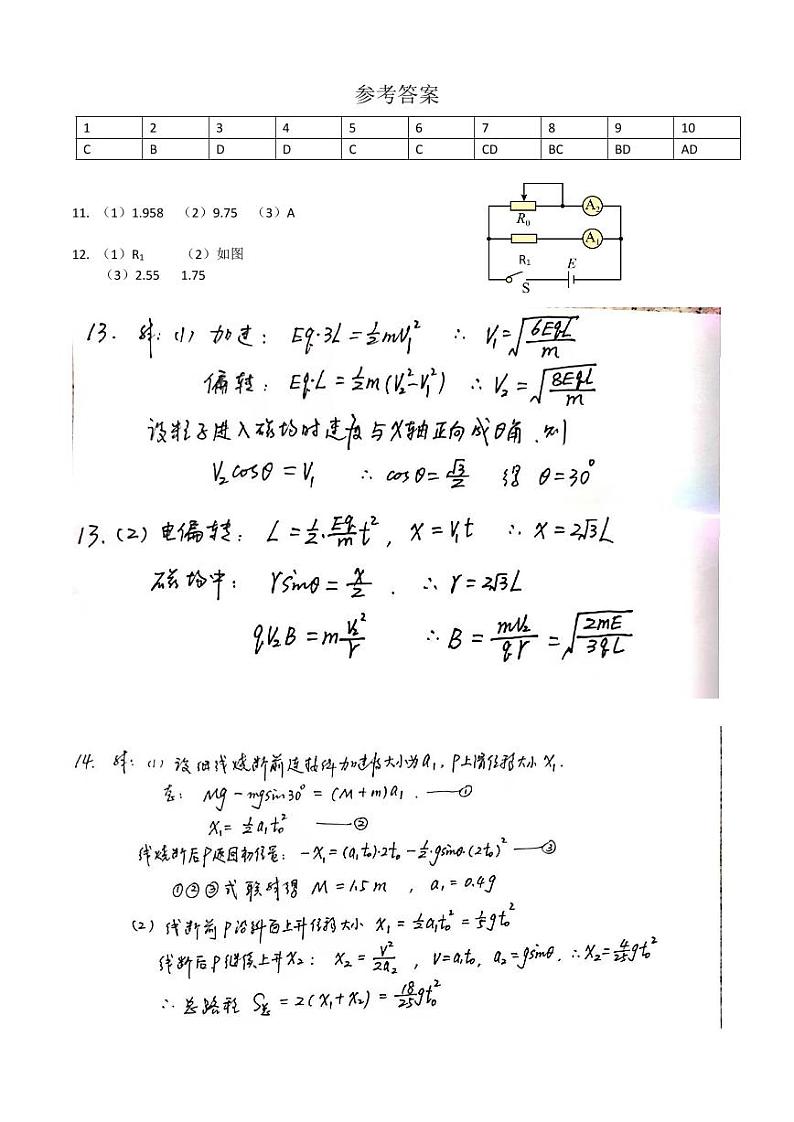 参考答案
1 2 3 4 5 6 7 8 9 10
C B D D C C CD BC BD AD
11. （1）1.958 （2）9.75 （3）A
12. （1）R₁ （2）如图
（3）2.55 1.75
R₀ A₂
A₁
R₁ E
S
13. 解：(1) 加速： Eq·3L = ½mV₁² ∴ V₁ = √(6EqL/m)
偏转： Eq·L = ½m(V₂²−V₁²) ∴ V₂ = √(8EqL/m)
设粒子进入磁场时速度与X轴正向成θ角，则
V₂cosθ = V₁ ∴ cosθ = √3/2 得 θ = 30°
13. (2) 电偏转： L = ½·Eq/m t² , X = V₁t ∴ X = 2√3L
磁场中： rsinθ = X/2 . ∴ r = 2√3L
qV₂B = m V₂²/r ∴ B = mV₂/qr = √(2mE/3qL)
14. 解：(1) 设细线烧断前连接体加速度大小为a₁，P上滑位移大小X₁.
在： Mg − mgsin30° = (M+m)a₁ . —①
X₁ = ½a₁t₀² —②
线烧断后P返回初位置： −X₁ = (a₁t₀)·2t₀ − ½·gsinθ·(2t₀)² —③
①②③式联立得 M = 1.5m , a₁ = 0.4g
(2) 线断前P沿斜面上升位移大小 X₁ = ½a₁t₀² = ⅕gt₀²
线断后P继续上升X₂： X₂ = V²/2a₂ , V = a₁t₀, a₂ = gsinθ, ∴ X₂ = 4/25 gt₀²
∴ 总路程 S总 = 2(X₁+X₂) = 18/25 gt₀²